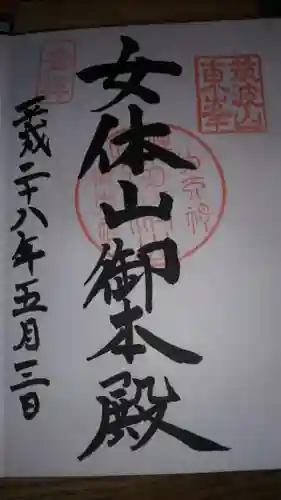 筑波山
女体山御本殿
平成二十八年五月三日